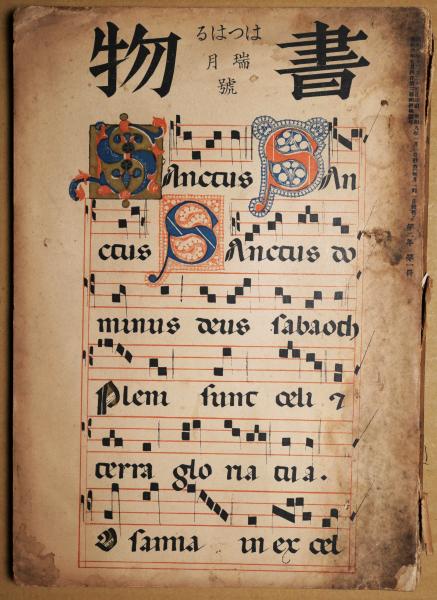 書物
はつはる
瑞月號
第二年 第一冊
Sanctus San
ctus Sanctus do
minus deus sabaoth
Pleni sunt celi ⁊
terra glo ria tua.
O sanna in ex cel